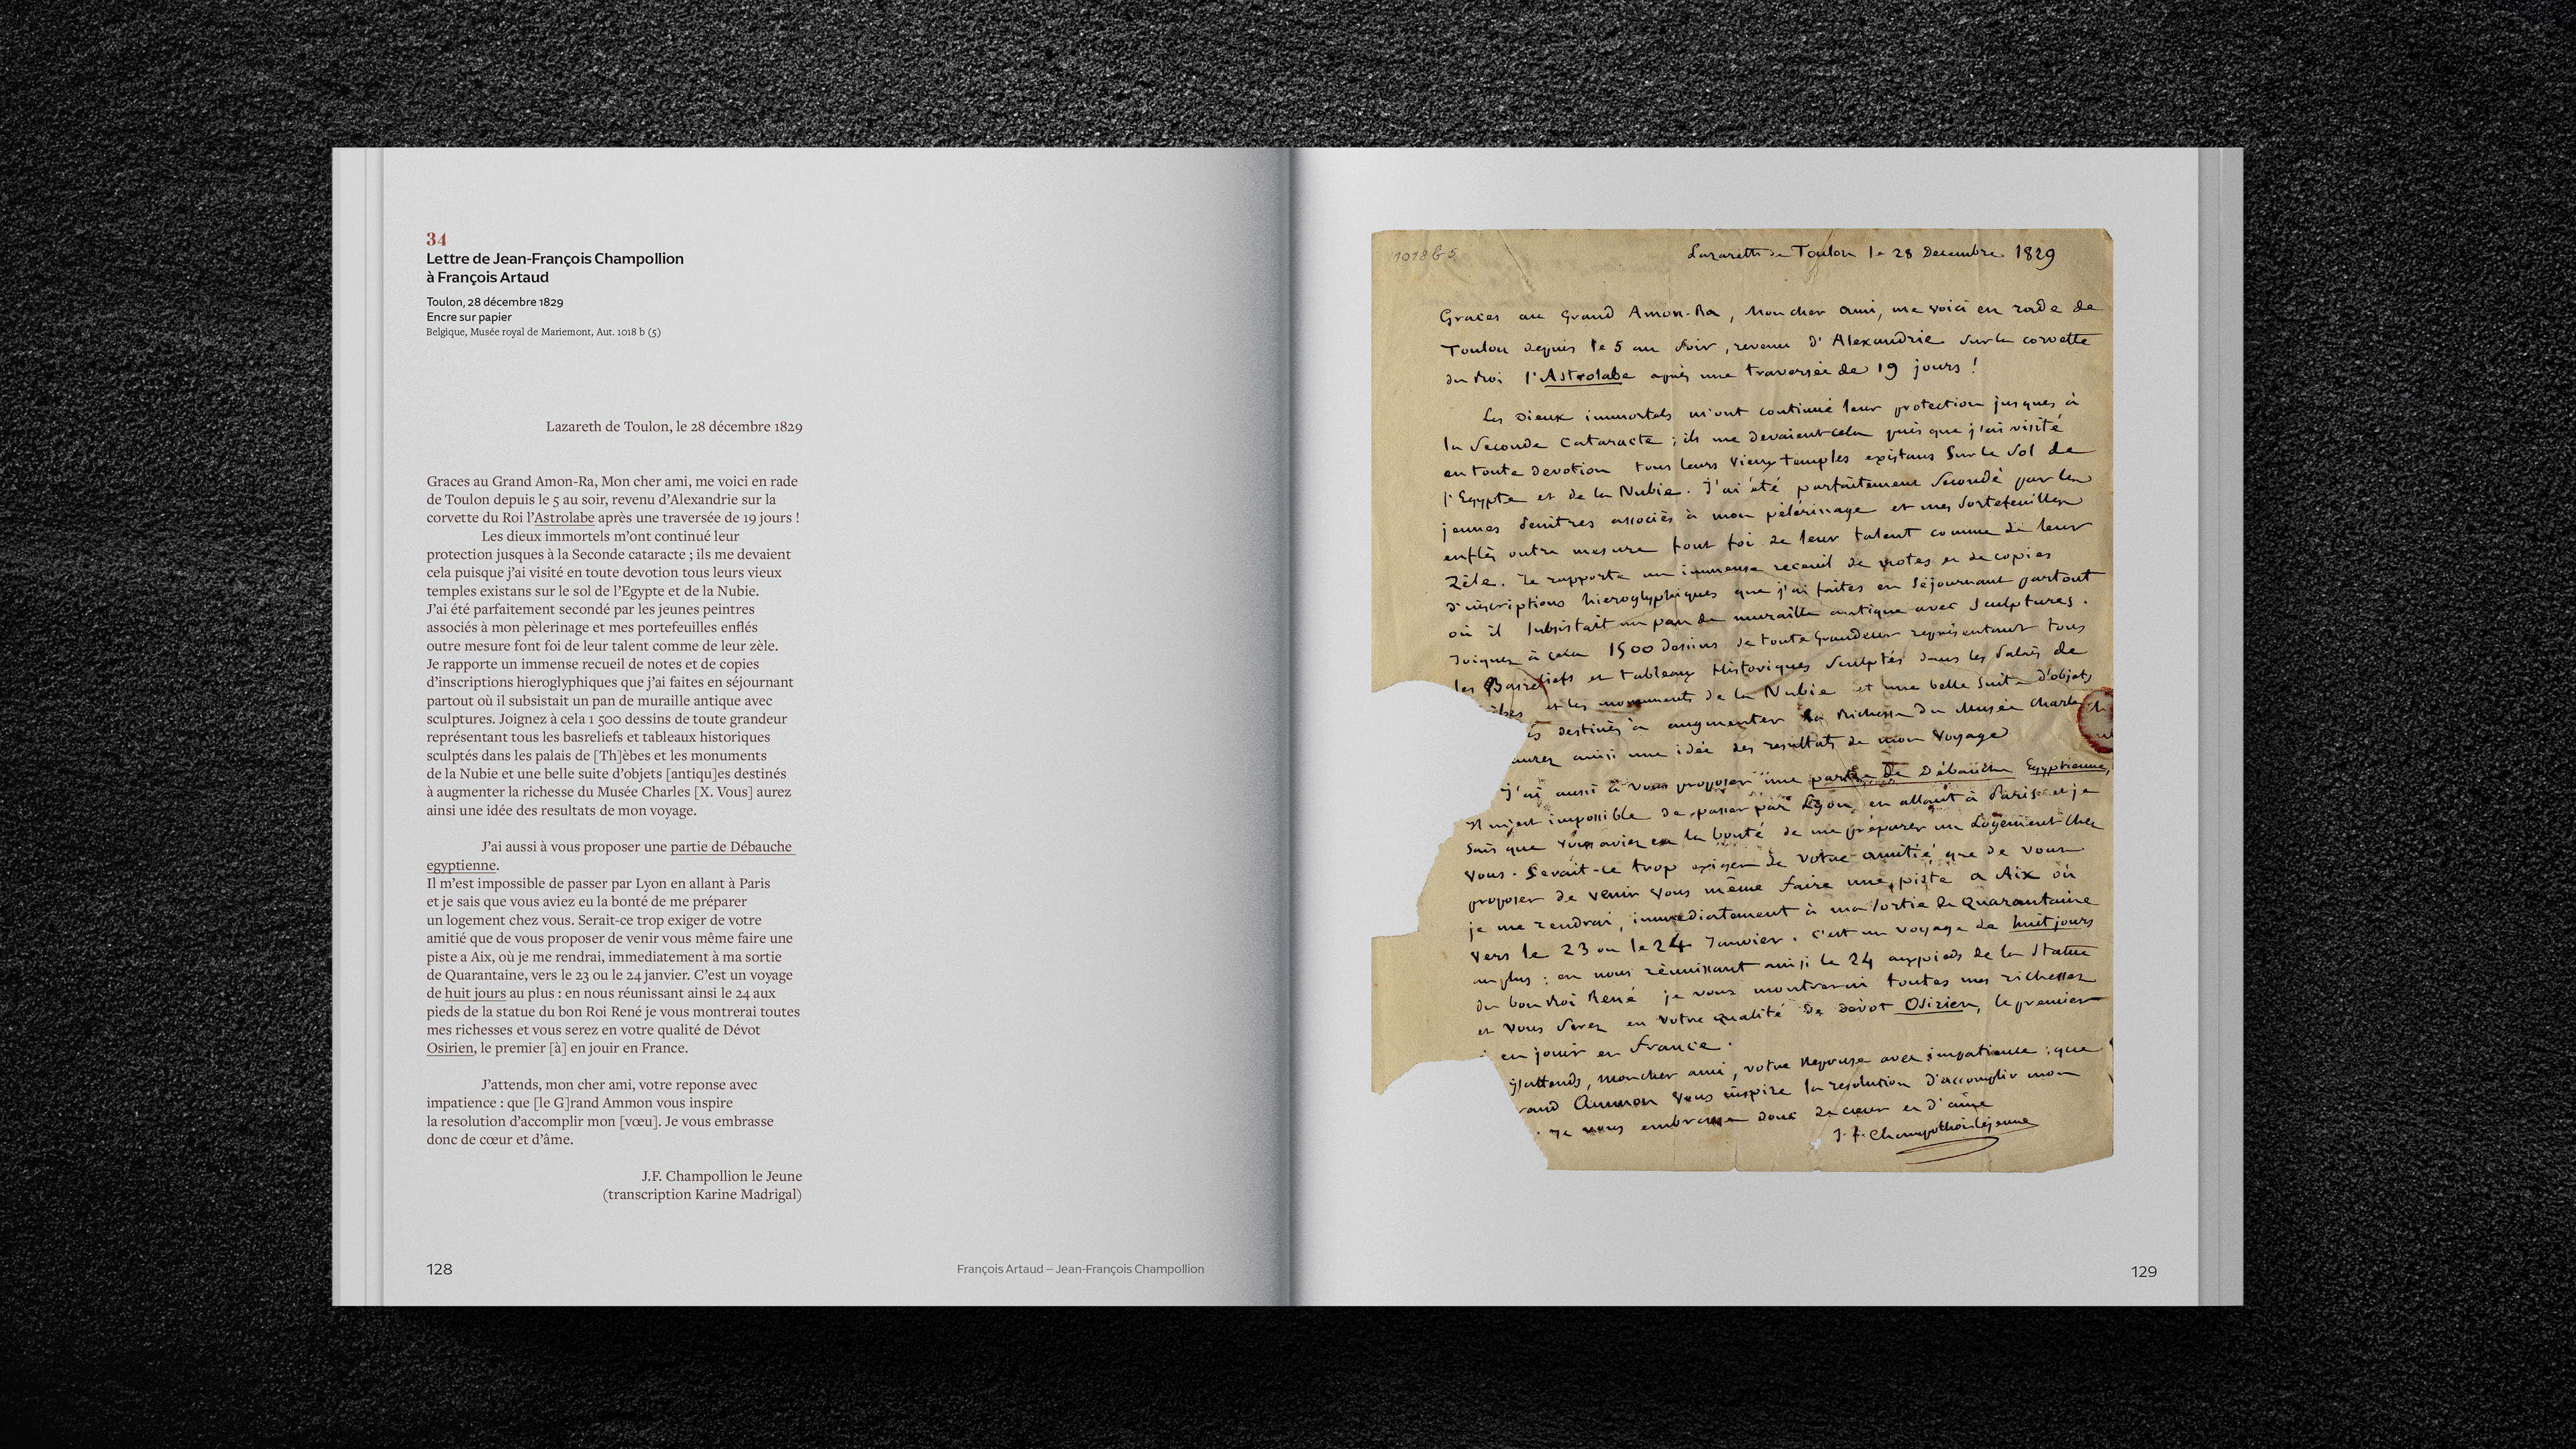 34
Lettre de Jean-François Champollion
à François Artaud
Toulon, 28 décembre 1829
Encre sur papier
Belgique, Musée royal de Mariemont, Aut. 1018 b (5)
Lazareth de Toulon, le 28 décembre 1829
Graces au Grand Amon-Ra, Mon cher ami, me voici en rade
de Toulon depuis le 5 au soir, revenu d’Alexandrie sur la
corvette du Roi l’Astrolabe après une traversée de 19 jours !
Les dieux immortels m’ont continué leur
protection jusques à la Seconde cataracte ; ils me devaient
cela puisque j’ai visité en toute devotion tous leurs vieux
temples existans sur le sol de l’Egypte et de la Nubie.
J’ai été parfaitement secondé par les jeunes peintres
associés à mon pèlerinage et mes portefeuilles enflés
outre mesure font foi de leur talent comme de leur zèle.
Je rapporte un immense recueil de notes et de copies
d’inscriptions hieroglyphiques que j’ai faites en séjournant
partout où il subsistait un pan de muraille antique avec
sculptures. Joignez à cela 1 500 dessins de toute grandeur
représentant tous les basreliefs et tableaux historiques
sculptés dans les palais de [Th]èbes et les monuments
de la Nubie et une belle suite d’objets [antiqu]es destinés
à augmenter la richesse du Musée Charles [X. Vous] aurez
ainsi une idée des resultats de mon voyage.
J’ai aussi à vous proposer une partie de Débauche
egyptienne.
Il m’est impossible de passer par Lyon en allant à Paris
et je sais que vous aviez eu la bonté de me préparer
un logement chez vous. Serait-ce trop exiger de votre
amitié que de vous proposer de venir vous même faire une
piste a Aix, où je me rendrai, immediatement à ma sortie
de Quarantaine, vers le 23 ou le 24 janvier. C’est un voyage
de huit jours au plus : en nous réunissant ainsi le 24 aux
pieds de la statue du bon Roi René je vous montrerai toutes
mes richesses et vous serez en votre qualité de Dévot
Osirien, le premier [à] en jouir en France.
J’attends, mon cher ami, votre reponse avec
impatience : que [le G]rand Ammon vous inspire
la resolution d’accomplir mon [vœu]. Je vous embrasse
donc de cœur et d’âme.
J.F. Champollion le Jeune
(transcription Karine Madrigal)
128
François Artaud – Jean-François Champollion
1018 b 5
Lazareth de Toulon le 28 Decembre 1829
Graces au Grand Amon-Ra, Mon cher ami, me voici en rade de
Toulon depuis le 5 au soir, revenu d'Alexandrie sur la corvette
du Roi l'Astrolabe après une traversée de 19 jours !
Les Dieux immortels m'ont continué leur protection jusques à
la Seconde Cataracte ; ils me devaient cela puisque j'ai visité
en toute devotion tous leurs vieux temples existans sur le sol de
l'Egypte et de la Nubie. J'ai été parfaitement secondé par les
jeunes peintres associés à mon pèlerinage et mes portefeuilles
enflés outre mesure font foi de leur talent comme de leur
Zèle. Je rapporte un immense recueil de notes et de copies
d'inscriptions hieroglyphiques que j'ai faites en séjournant partout
où il subsistait un pan de muraille antique avec sculptures.
Joignez à cela 1500 dessins de toute grandeur représentant tous
les Basreliefs et tableaux Historiques sculptés dans les Palais de
èbes et les monuments de la Nubie et une belle suite d'objets
es destinés à augmenter la richesse du Musée Charles
aurez ainsi une idée des resultats de mon voyage
J'ai aussi à vous proposer une partie de Débauche Egyptienne,
Il m'est impossible de passer par Lyon en allant à Paris et je
sais que vous aviez eu la bonté de me préparer un Logement chez
vous. Serait-ce trop exiger de votre amitié que de vous
proposer de venir vous même faire une piste a Aix où
je me rendrai, immediatement à ma sortie de Quarantaine
vers le 23 ou le 24 Janvier. C'est un voyage de huit jours
au plus : en nous réunissant ainsi le 24 aux pieds de la Statue
du bon Roi René je vous montrerai toutes mes richesses
et vous serez en votre qualité de dévot Osirien, le premier
en jouir en France.
J'attends, mon cher ami, votre Reponse avec impatience : que
rand Ammon vous inspire la resolution d'accomplir mon
Je vous embrasse donc de cœur et d'âme
J. F. Champollion le jeune
129